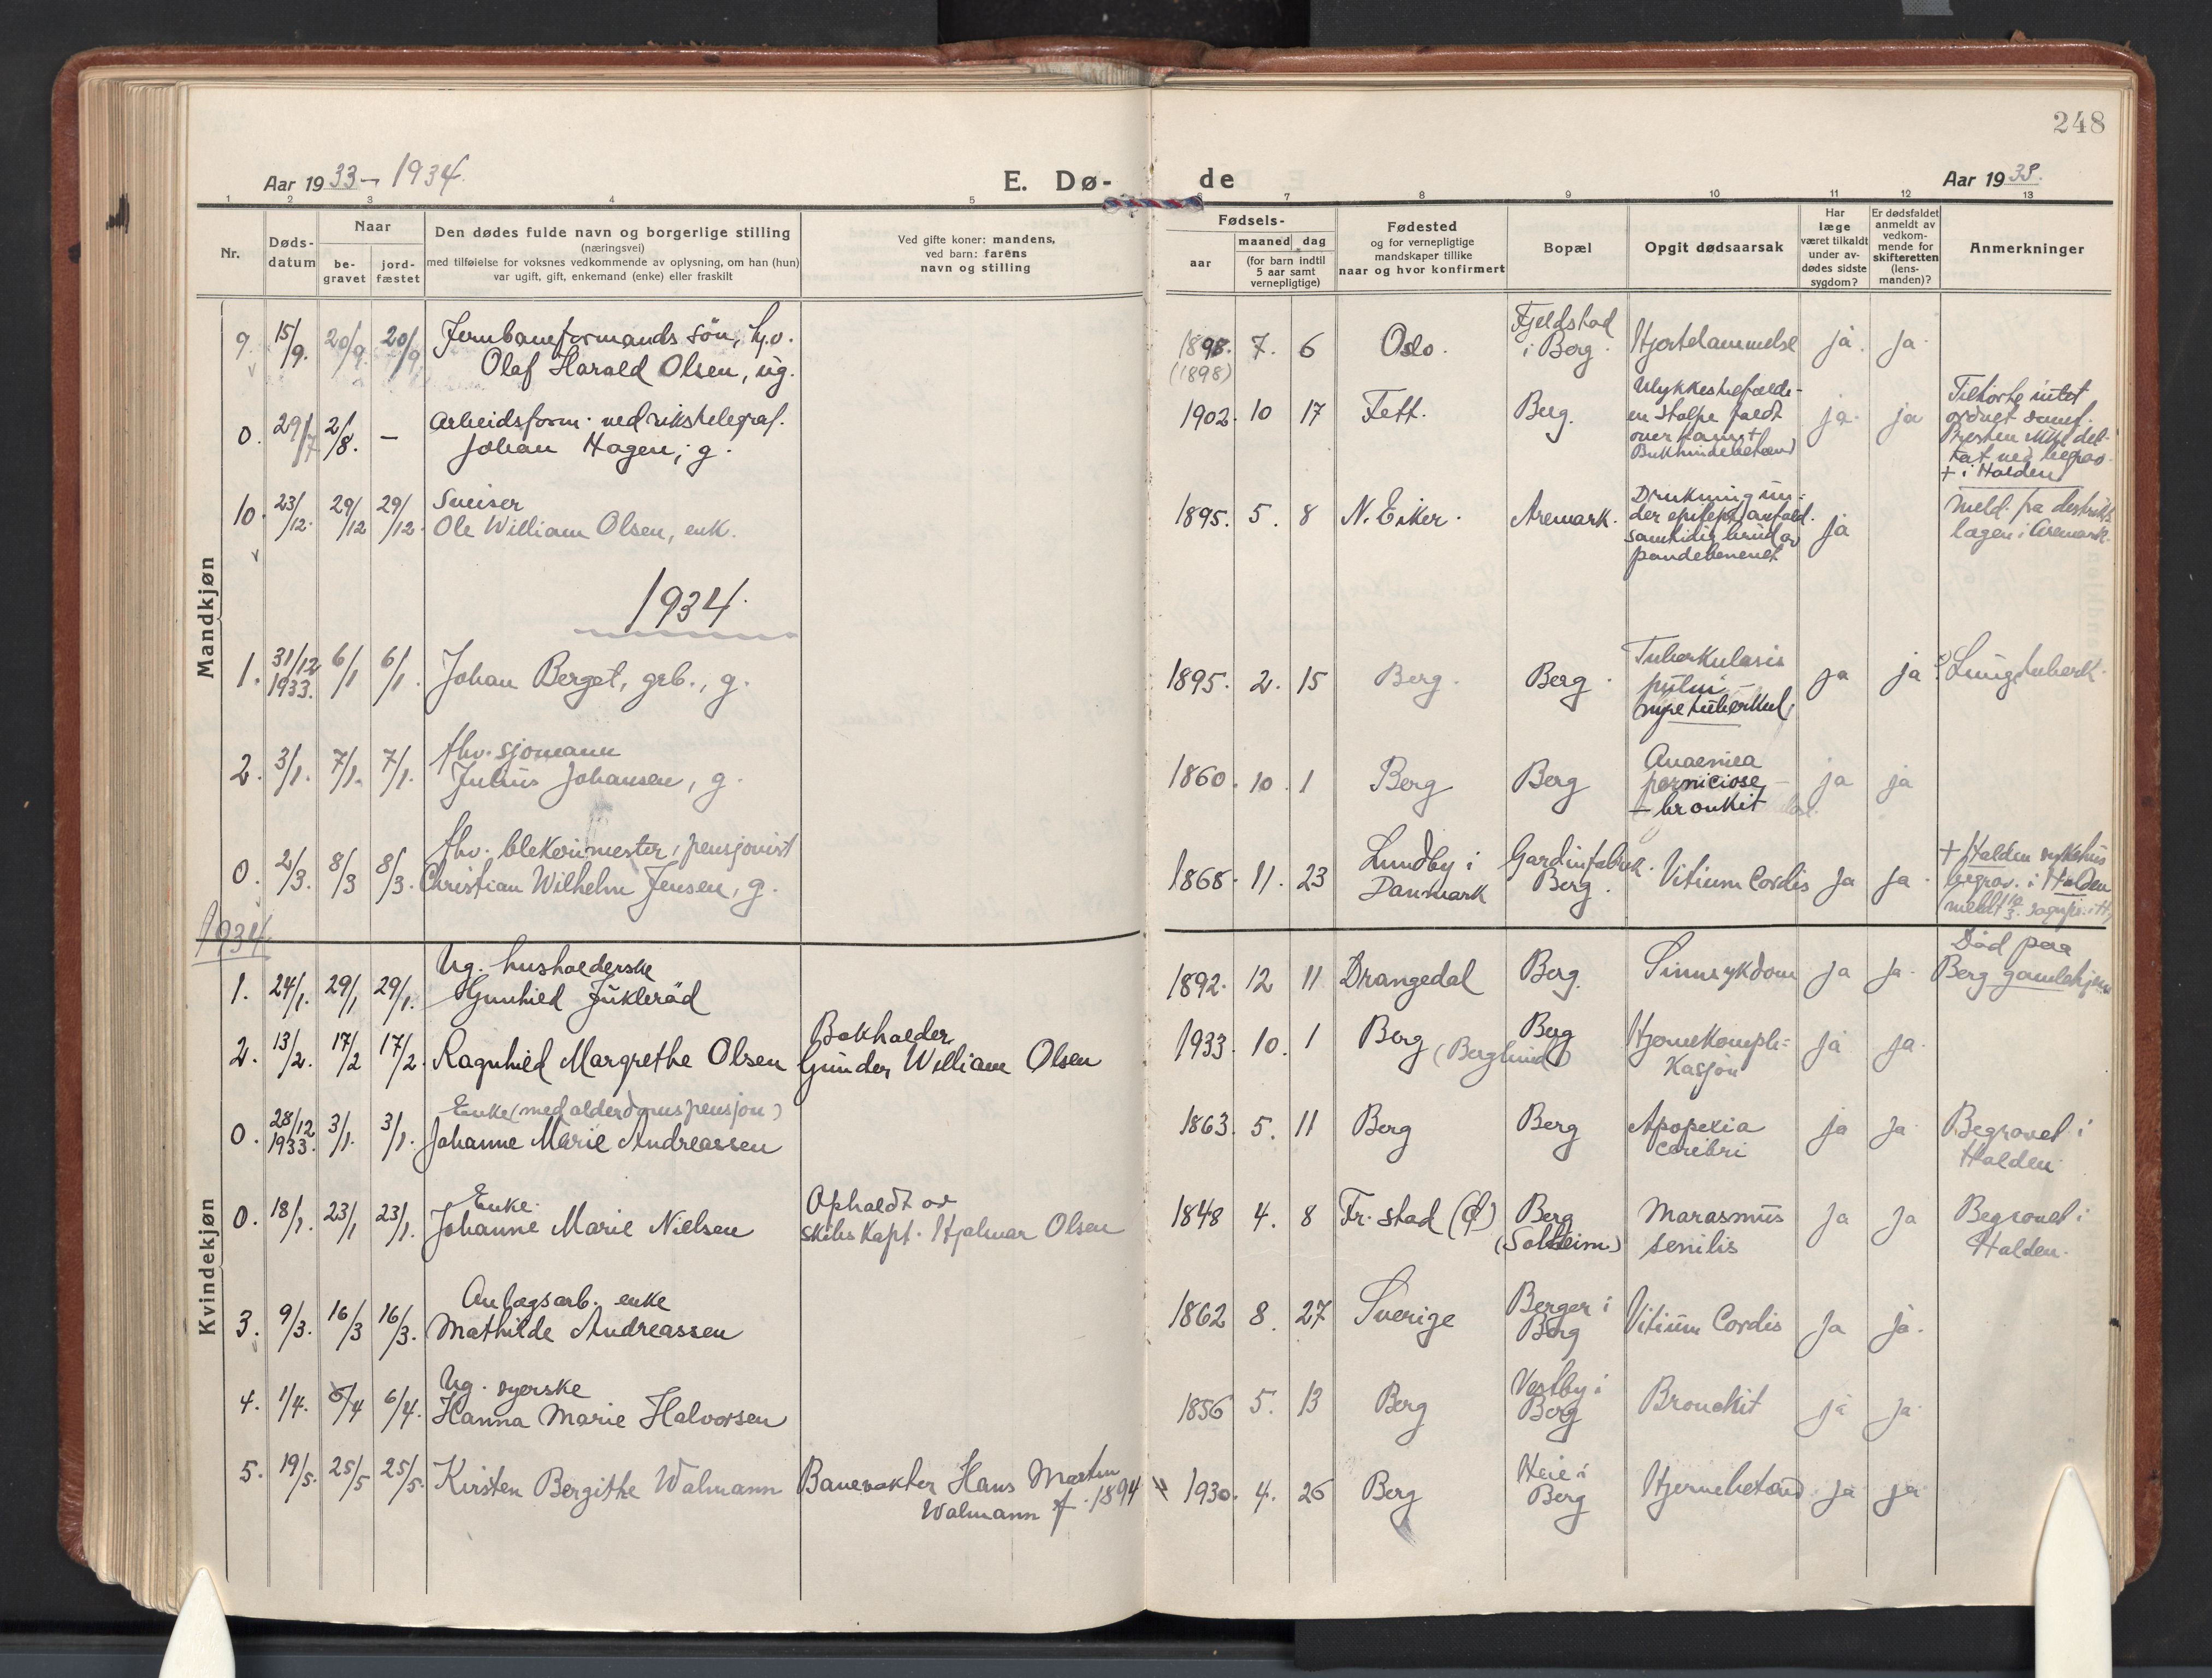 248
Aar 1933 - 1934.
E. Dø-
de
Aar 1933.
1 2 3 4 5 6 7 8 9 10 11 12 13
Nr.
Døds-
datum
Naar
be-
gravet
jord-
fæstet
Den dødes fulde navn og borgerlige stilling
(næringsvei)
med tilføielse for voksnes vedkommende av oplysning, om han (hun)
var ugift, gift, enkemand (enke) eller fraskilt
Ved gifte koner: mandens,
ved barn: farens
navn og stilling
Fødsels-
aar
maaned dag
(for barn indtil
5 aar samt
vernepligtige)
Fødested
og for vernepligtige
mandskaper tillike
naar og hvor konfirmert
Bopæl
Opgit dødsaarsak
Har
læge
været tilkaldt
under av-
dødes sidste
sygdom?
Er dødsfaldet
anmeldt av
vedkom-
mende for
skifteretten
(lens-
manden)?
Anmerkninger
Mandkjøn
9. 15/9. 20/9. 20/9 Jernbaneformands søn,
Olaf Harald Olsen, ug.
1898. 7. 6 Oslo. Fjeldstad
i Berg. Hjertelammelse ja. ja.
(1898)
0. 29/7 2/8. — Arbeidsform. ved rikstelegraf.
Johan Hagen, g.
1902. 10 17 Fett. Berg. Ulykkestilfælde-
en stolpe faldt
over ham
Bukhindebetænd ja. ja
Tilhørte intet
ordnet samf.
Presten ikke del-
tat ved begrav.
+ i Halden
10. 23/12. 29/12 29/12. Sveiser
Ole William Olsen, enk.
1895. 5. 8 N. Eiker. Aremark. Drukning un-
der epilept. anfald.
samtidig brud av
pandebenenet ja
meld. fra distrikts
lægen i Aremark.
1934.
1. 31/12 1933. 6/1 6/1. Johan Berget, grb., g.
1895. 2. 15 Berg. Berg. Tuberkulosis
pulm -
nyretuberkul. ja ja Lungetuberk.
2. 3/1. 7/1. 7/1. fhv. sjømann
Julius Johansen, g.
1860. 10. 1 Berg Berg Anaemiea
perniciose -
- bronkit ja ja
0. 2/3. 8/3 8/3. fhv. blekerimester, pensjonist
Christian Wilhelm Jensen, g.
1868. 11. 23 Lundby i
Danmark Gardinfabrik.
Berg. Vitium Cordis ja ja.
+ Halden sykehus
begrav. i Halden
meldt 10/3. sognepr. i H.
1934.
Kvindekjøn
1. 24/1. 29/1 29/1. Ug. husholderske
Gunhild Jukleråd
1892. 12 11 Drangedal Berg. Sinnsykdom ja ja.
Død paa
Berg gamlehjem
2. 13/2. 17/2 17/2. Ragnhild Margrethe Olsen
Bokholder
Gunder William Olsen
1933. 10. 1 Berg (Berglund) Berg Hjernekompli-
kasjon ja ja.
0. 28/12 1933. 3/1. 3/1. Enke (med alderdomspensjon)
Johanne Marie Andreassen
1863. 5. 11 Berg Berg Apopexia
cerebri ja ja. Begravet i
Halden.
0. 18/1. 23/1 23/1. Enke.
Johanne Marie Nielsen
Opholdt av
skibskapt. Hjalmar Olsen
1848 4. 8 Fr.stad (Ø) Berg
(Solheim) Marasmus
senilis ja ja Begravet i
Halden.
3. 9/3. 16/3 16/3. Anlægsarb. enke
Mathilde Andreassen
1862 8. 27 Sverige Berger i
Berg Vitium Cordis ja ja.
4. 1/4. 6/4 6/4. Ug. syerske
Hanna Marie Halvorsen
1856 5. 13 Berg Vestby i
Berg Bronchit ja ja.
5. 19/5. 25/5 25/5. Kirsten Bergithe Walmann
Banevokter Hans Martin
Walmann f. 1894
1930. 4. 26 Berg Heie i
Berg Hjernebetænd ja ja.